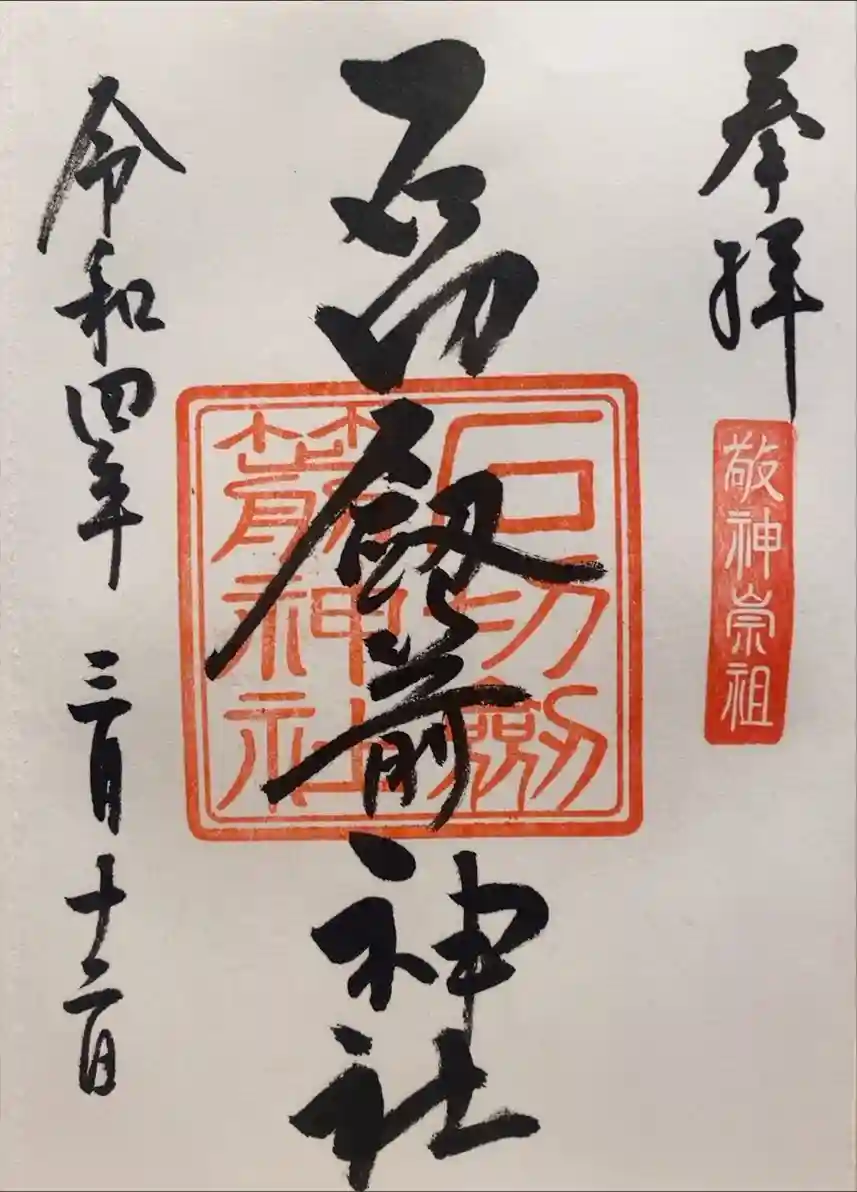 奉拝
敬神崇祖
石切劔箭神社
石切劔
箭神社
令和四年 三月十二日